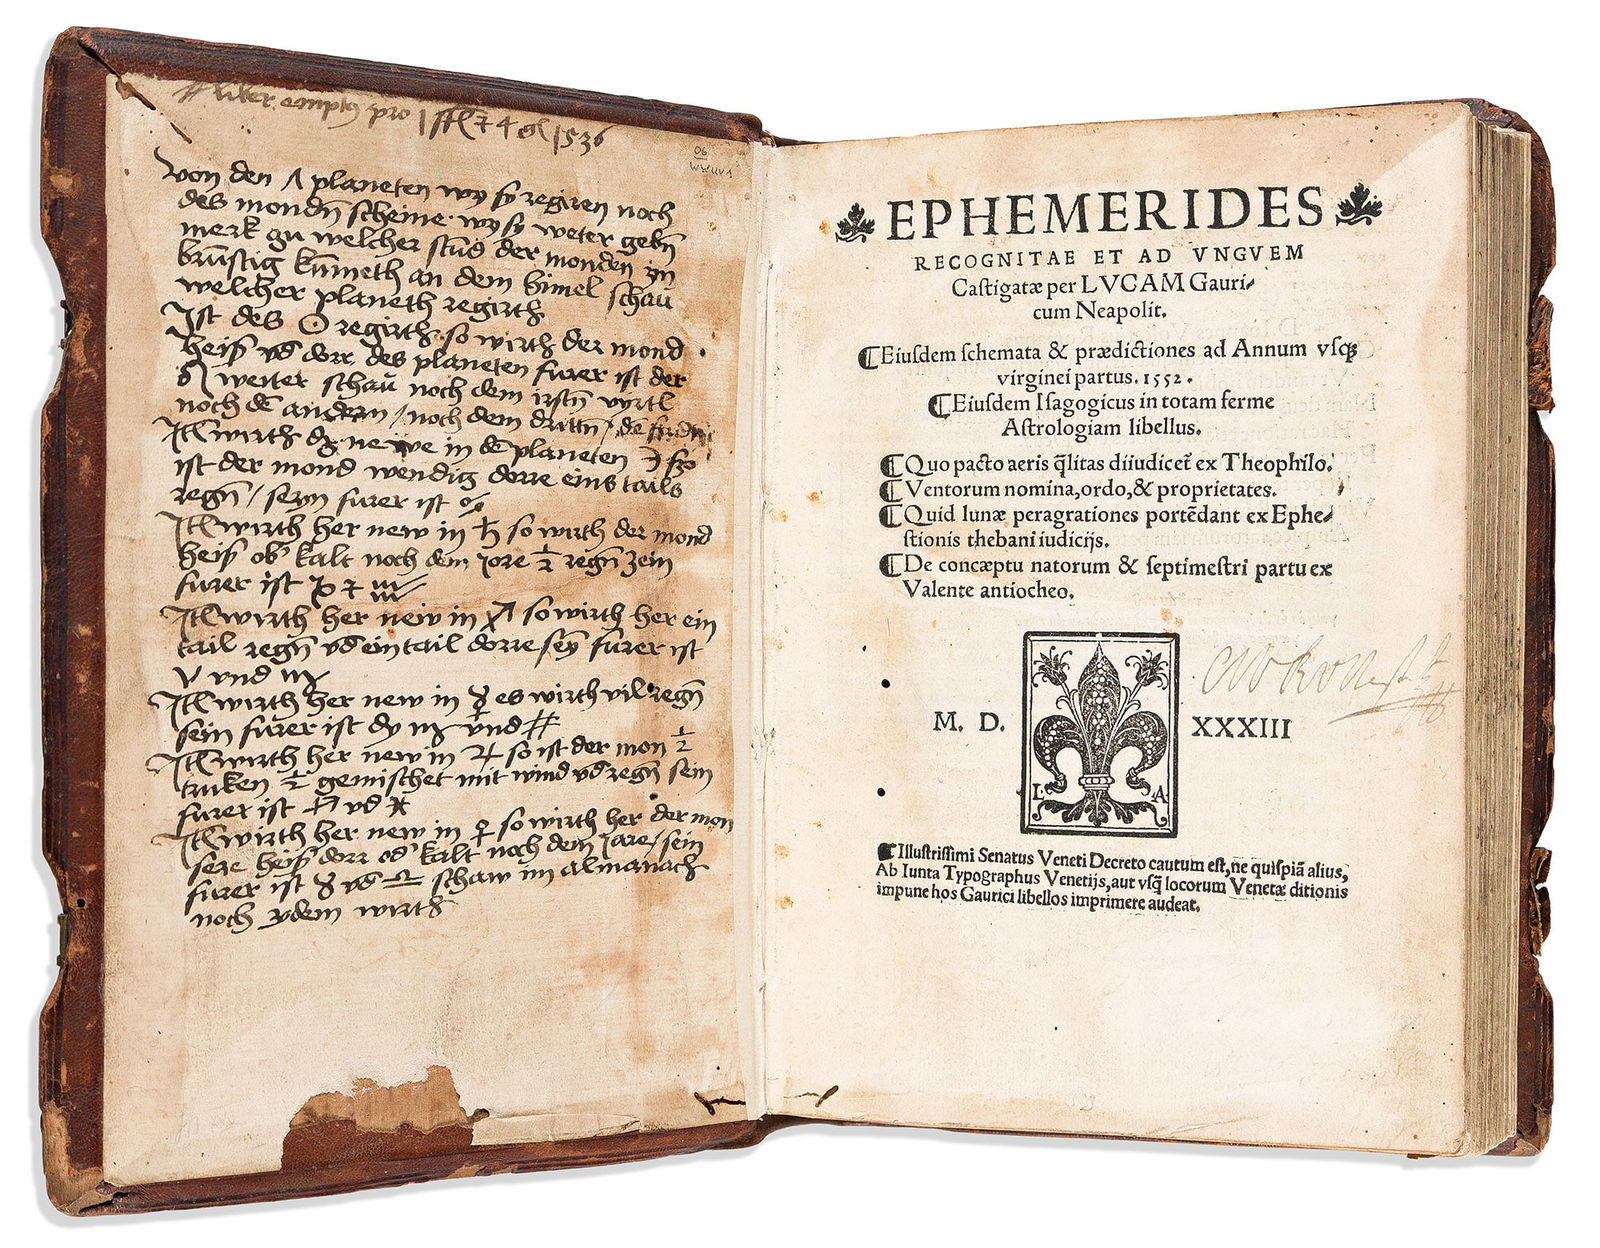 liber empt9 pro 1 fl 7 4 gl 1536
06
Von den Λ planeten wy sy regiren noch
des mondn̄ scheine wy sy weter gebn̄
merk zu welcher stūd der monden yn
brūstig kūmeth an dem himel schau
welcher planeth regirth
Ist des ☉ regirth so wirth der mond
heiß vd dorr des planeten furer ist der
♌ weiter schau noch dem irstn̄ vyrtl
noch dē andern / noch dem drittn̄ / dē
Itl wirth he new in dē planeten ☽ so
ist der mond wendig dorre eins tails
regn̄ / seyn furer ist ♋
Itl wirth her new in ♄ so wirth der mond
heiß od' kalt noch dem Jore ½ regn̄ zein
furer ist ♑ + ♒
Itl wirth her new in ♂ so wirth her ein
tail regn̄ vd ein tail dorre sey furer ist
♈ vnd ♏
Itl wirth her new in ☿ es wirth vil regn̄
sein furer ist dy ♍ vnd ♊
Itl wirth her new in ♃ so ist der mon ½
truken ½ gemischet mit wind vd regn̄ sein
furer ist ♐ vd ♓
Itl wirth her new in ♀ so wirth her der mon
sere heiß dorr od' kalt noch dem Jare / sein
furer ist ♉ vd ♎ schaw im almanach
noch ydem wirth
EPHEMERIDES
RECOGNITAE ET AD VNGVEM
Castigatæ per LVCAM Gauri-
cum Neapolit.
¶Eiusdem schemata & prædictiones ad Annum vsqꝫ
virginei partus. 1552.
¶Eiusdem Isagogicus in totam ferme
Astrologiam libellus.
¶Quo pacto aeris q̄litas diiudicet̄ ex Theophilo.
¶Ventorum nomina, ordo, & proprietates.
¶Quid lunæ peragrationes portēdant ex Ephe-
stionis thebani iudicijs.
¶De concæptu natorum & septimestri partu ex
Valente antiocheo.
M. D. XXXIII
L A
¶Illustrissimi Senatus Veneti Decreto cautum est, ne quispiā alius,
Ab Iunta Typographus Venetijs, aut vsq̄ locorum Venetæ ditionis
impune hos Gaurici libellos imprimere audeat.